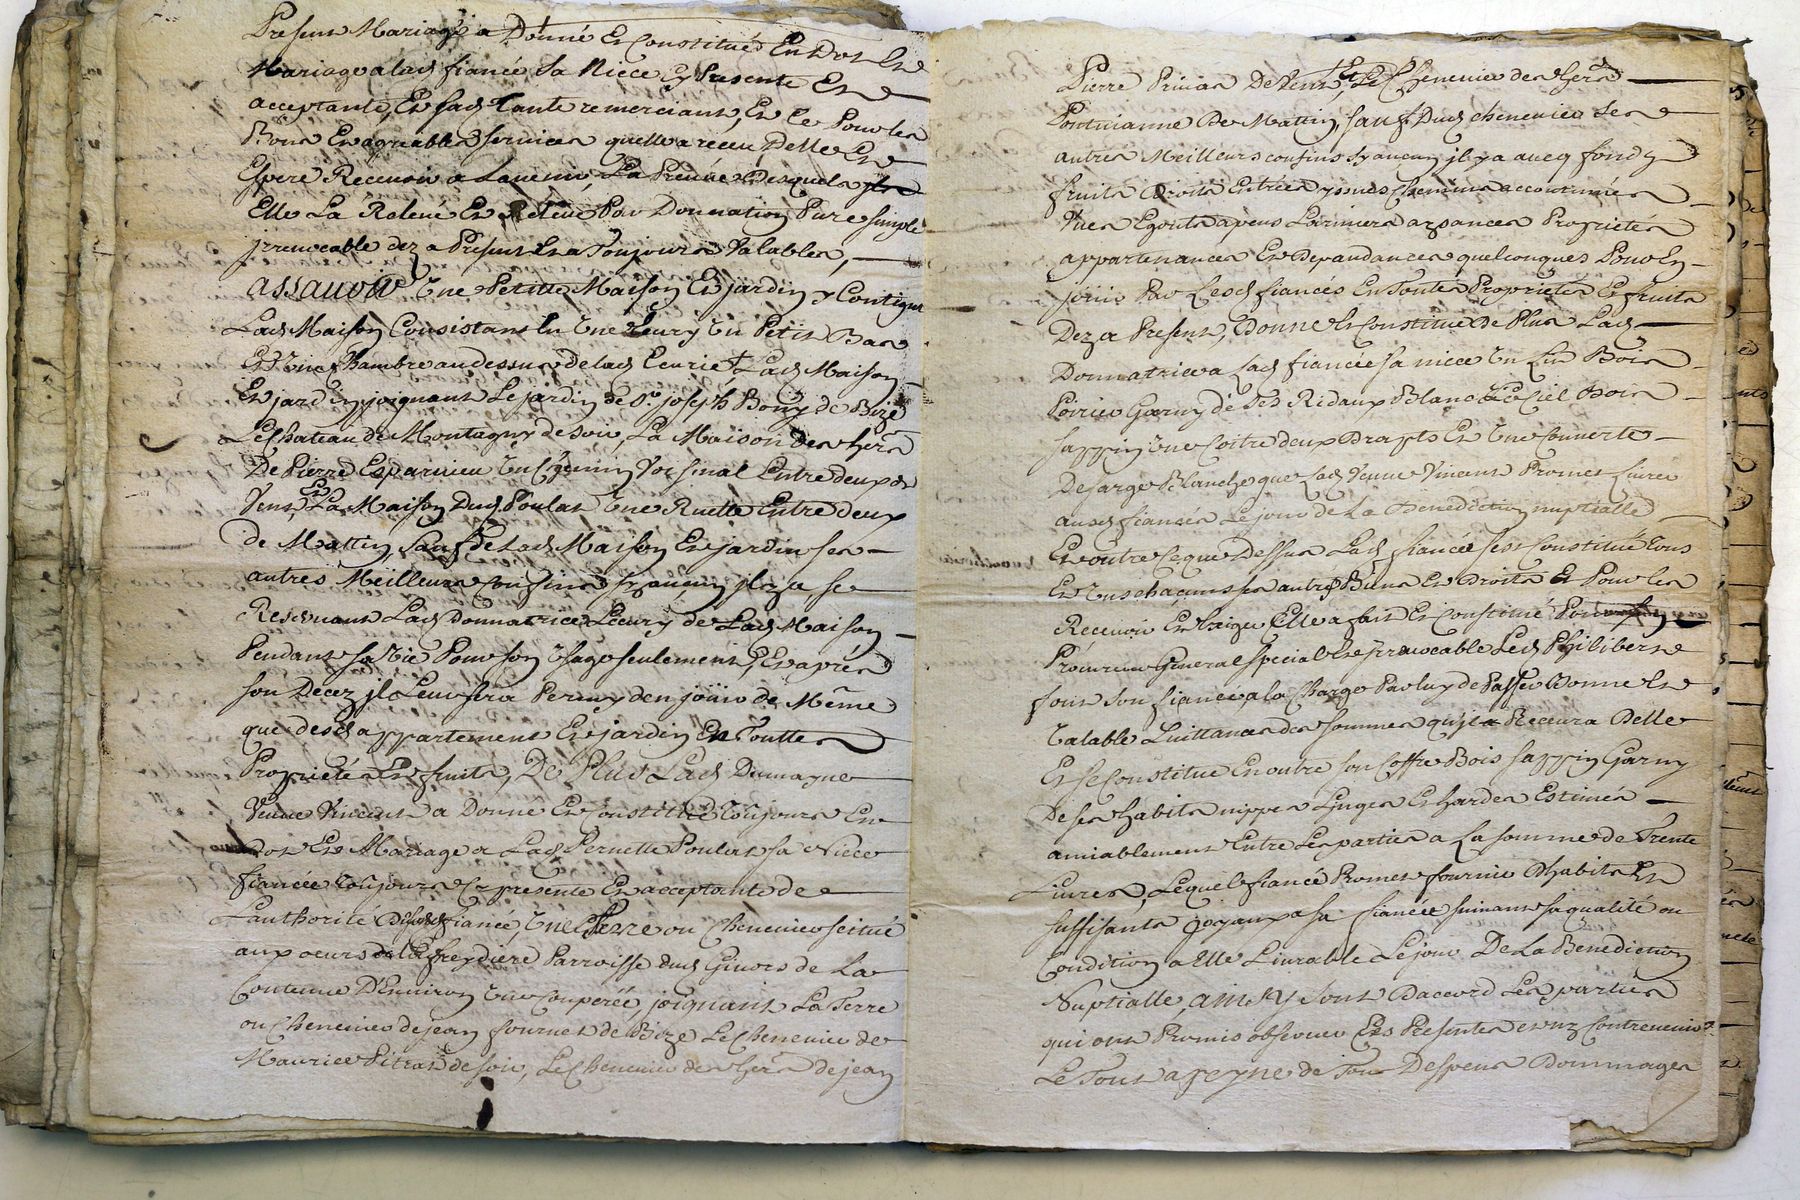 Present Mariage a Donné Et Constitué En Dot Et
Mariage a lad fiancé Sa Niece Cy Presente Et
acceptante, Et sad Tante remerciant, Et Ce Pour les
Bons Et agreables services quelle a receu Delle Et
Espere Recevoir a Lavenir, La Preuve Desquels
Elle La Relevé Et Releve Par Donnation Pure simple
jrrevocable dez a Present Et a Toujours Valables,
assavoir Une Petitte Maison Et jardin y Contigue
Lad Maison Consistant En Une Ecury Un Petit Bas
Et Une Chambre au dessus de lad Ecurie, Lad Maison
Et jardin joignant Le jardin de Sr. joseph Bony de Bize
Le Chateau de Montagny de soir, La Maison des hers
De Pierre Esparvieu Un Chemin Voisinal Entre deux de
Vent, Et La Maison Dud Poulat Une Ruette Entre deux
de Mattin, sauf de Lad Maison Et jardin ses
autres Meilleurs Confins sy aucun jl y a se
Reservant Lad Donnatrice, Lecury de Lad Maison
Pendant sa Vie Pour son Usage seulement, Et aprés
son Decez jl Leur sera Permy den joüir de Même
que desd appartement Et jardin En Touttes
Proprietés Et fruits, De Plus Lad
Veuve Vincent a Donné Et Constitué Toujours En
Dot Et Mariage a Lad Pernette Poulat sa Niece
fiancée Toujours Cy presente Et acceptante de
Lauthorité Dud fiancé, Une Terre ou Chenevier scitué
aux de La freydiere Parroisse dud Givors de La
Contenue D'Environ Une Couperée, joignant La Terre
ou Chenevier de jean fournet de Bize Le Chenevier de
Maurice Pitrat de soir, Le Chenevier des hers de jean
Pierre De Vent, Et Le Chenevier des hers
De Mattin, sauf Dud Chenevier ses
autres Meilleurs confins sy aucun jl y a avec fond
fruits Droits Entrées yssues Chemins accoutumés
Vües Egouts aysances Proprietés
appartenances Et Dependances quelconques Pour En
joüir Par Lesd fiancés En Toutes Proprietés Et fruits
Dez a Present, Donne Et Constitue De Plus Lad
Donnatrice a Lad fiancée sa niece Un Lit Bois
Poirier Garny de Ses Ridaux Blanc Le Ciel Bois
sappin Une Coitre deux Drapts Et Une Couverte
De sarge Blanche que Lad Veuve Vincent Promet Livrer
ausd fiancés Le jour de La Benediction nuptialle
Et outre Ce que Dessus Lad fiancée sest Constitué Tous
Et Uns chacuns ses autres Biens Et Droits Et Pour les
Recevoir Et Exiger Elle a fait Et Constitué Pour son
Procureur General special Et jrrevocable Led Philibert
sont son fiancé a la Charge Par luy de Passer Bonne Et
Valable Quittance des sommes qu'jl Recevra Delle
Et se Constitue En outre son Coffre Bois sappin Garny
De ses habits nippes Linges Et hardes Estimés
amiablement Entre Les parties a La somme de Trente
Livres, Lequel fiancé Promet fournir D'habits Et
suffisants joyaux a sa fiancée suivant sa qualité ou
Condition a Elle Livrable Le jour De La Benediction
Nuptialle, ainsy sont Daccord Les parties
qui ont Promis observer Ces Presentes et nz Contrevenir
Le Tout a peyne de Tous Despens Dommages